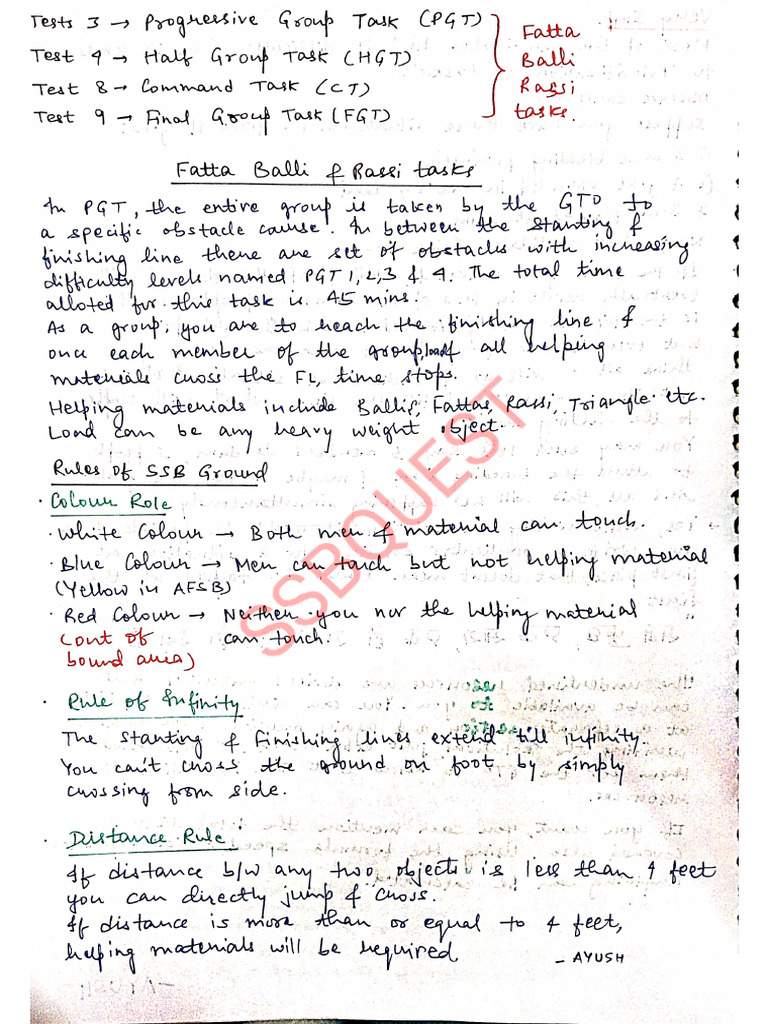 Tests 3 → Progressive Group Task (PGT)
Test 4 → Half Group Task (HGT)
Test 8 → Command Task (CT)
Test 9 → Final Group Task (FGT)
Fatta
Balli
Rassi
tasks.
Fatta Balli & Rassi tasks
In PGT, the entire group is taken by the GTO to
a specific obstacle course. In between the starting &
finishing line there are set of obstacles with increasing
difficulty levels named PGT 1, 2, 3 & 4. The total time
alloted for this task is 45 mins.
As a group, you are to reach the finishing line &
once each member of the group, load & all helping
materials cross the FL, time stops.
Helping materials include Ballis, Fattas, Rassi, Triangle etc.
Load can be any heavy weight object.
Rules of SSB Ground
· Colour Role
· White Colour → Both men & material can touch.
· Blue Colour → Men can touch but not helping material
(Yellow in AFSB)
· Red Colour → Neither you nor the helping material
(out of can touch.
bound area)
· Rule of Infinity
The starting & finishing lines extend till infinity.
You can't cross the ground on foot by simply
crossing from side.
· Distance Rule
If distance b/w any two objects is less than 4 feet
you can directly jump & cross.
If distance is more than or equal to 4 feet,
helping materials will be required.
- AYUSH
SSBQUEST